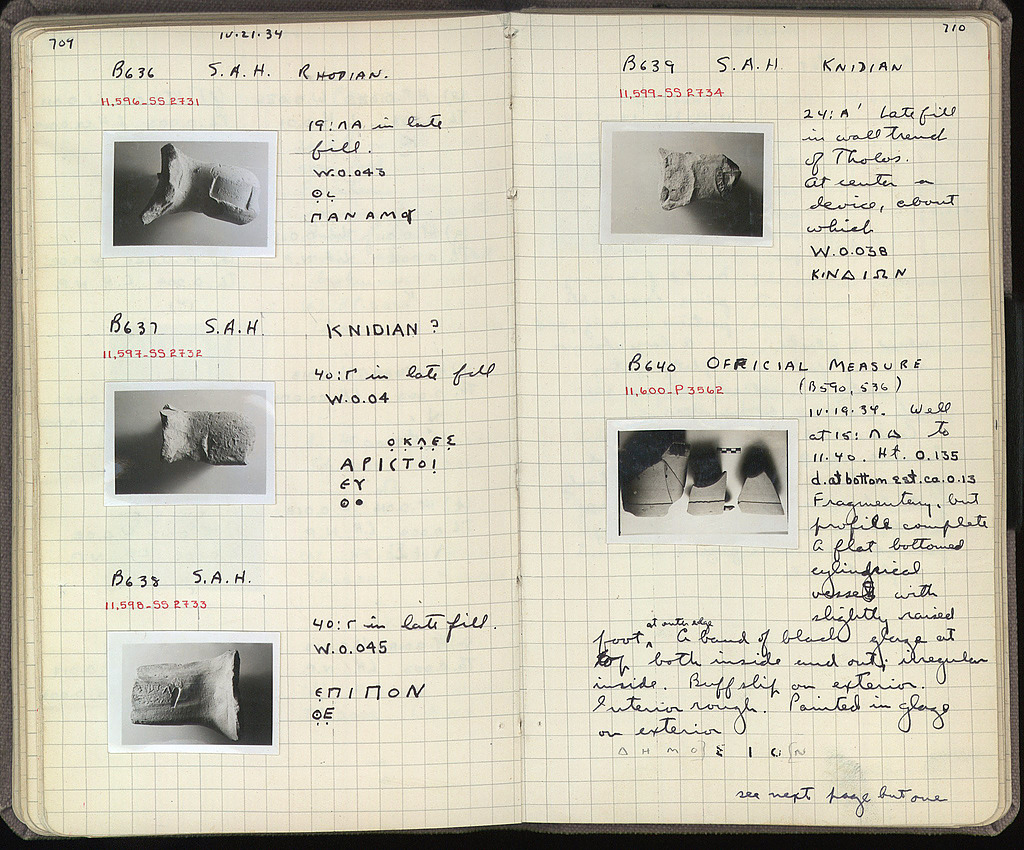 709
IV.21.34
B636 S.A.H. RHODIAN.
11,596-SS 2731
19:ΠΑ in late
fill.
W.0.043
ΘΕ
ΠΑΝΑΜΟΥ
B637 S.A.H. KNIDIAN?
11,597-SS 2732
40:Γ in late fill
W.0.04
ΟΚΛΕΣ
ΑΡΙΣΤΟΙ
ΕΥ
B638 S.A.H.
11,598-SS 2733
40:Γ in late fill.
W.0.045
ΕΠΙΠΟΝ
ΘΕ
710
B639 S.A.H. KNIDIAN
11,599-SS 2734
24:Α' Late fill
in wall trench
of Tholos.
At center a
device, about
which
W.0.038
ΚΝΙΔΙΩΝ
B640 OFFICIAL MEASURE
11,600-P 3562
(B590, 536)
IV.19.34. Well
at 15:ΠΔ to
11.40. Ht. 0.135
d. at bottom est. ca. 0.13
Fragmentary, but
profile complete
A flat bottomed
cylindrical
vessel with
slightly raised
foot, at outer edge A band of black glaze at
top both inside and out, irregular
inside. Buff slip on exterior.
Interior rough. Painted in glaze
on exterior
ΔΗΜΟ]ΣΙΟ[Ν
see next page but one